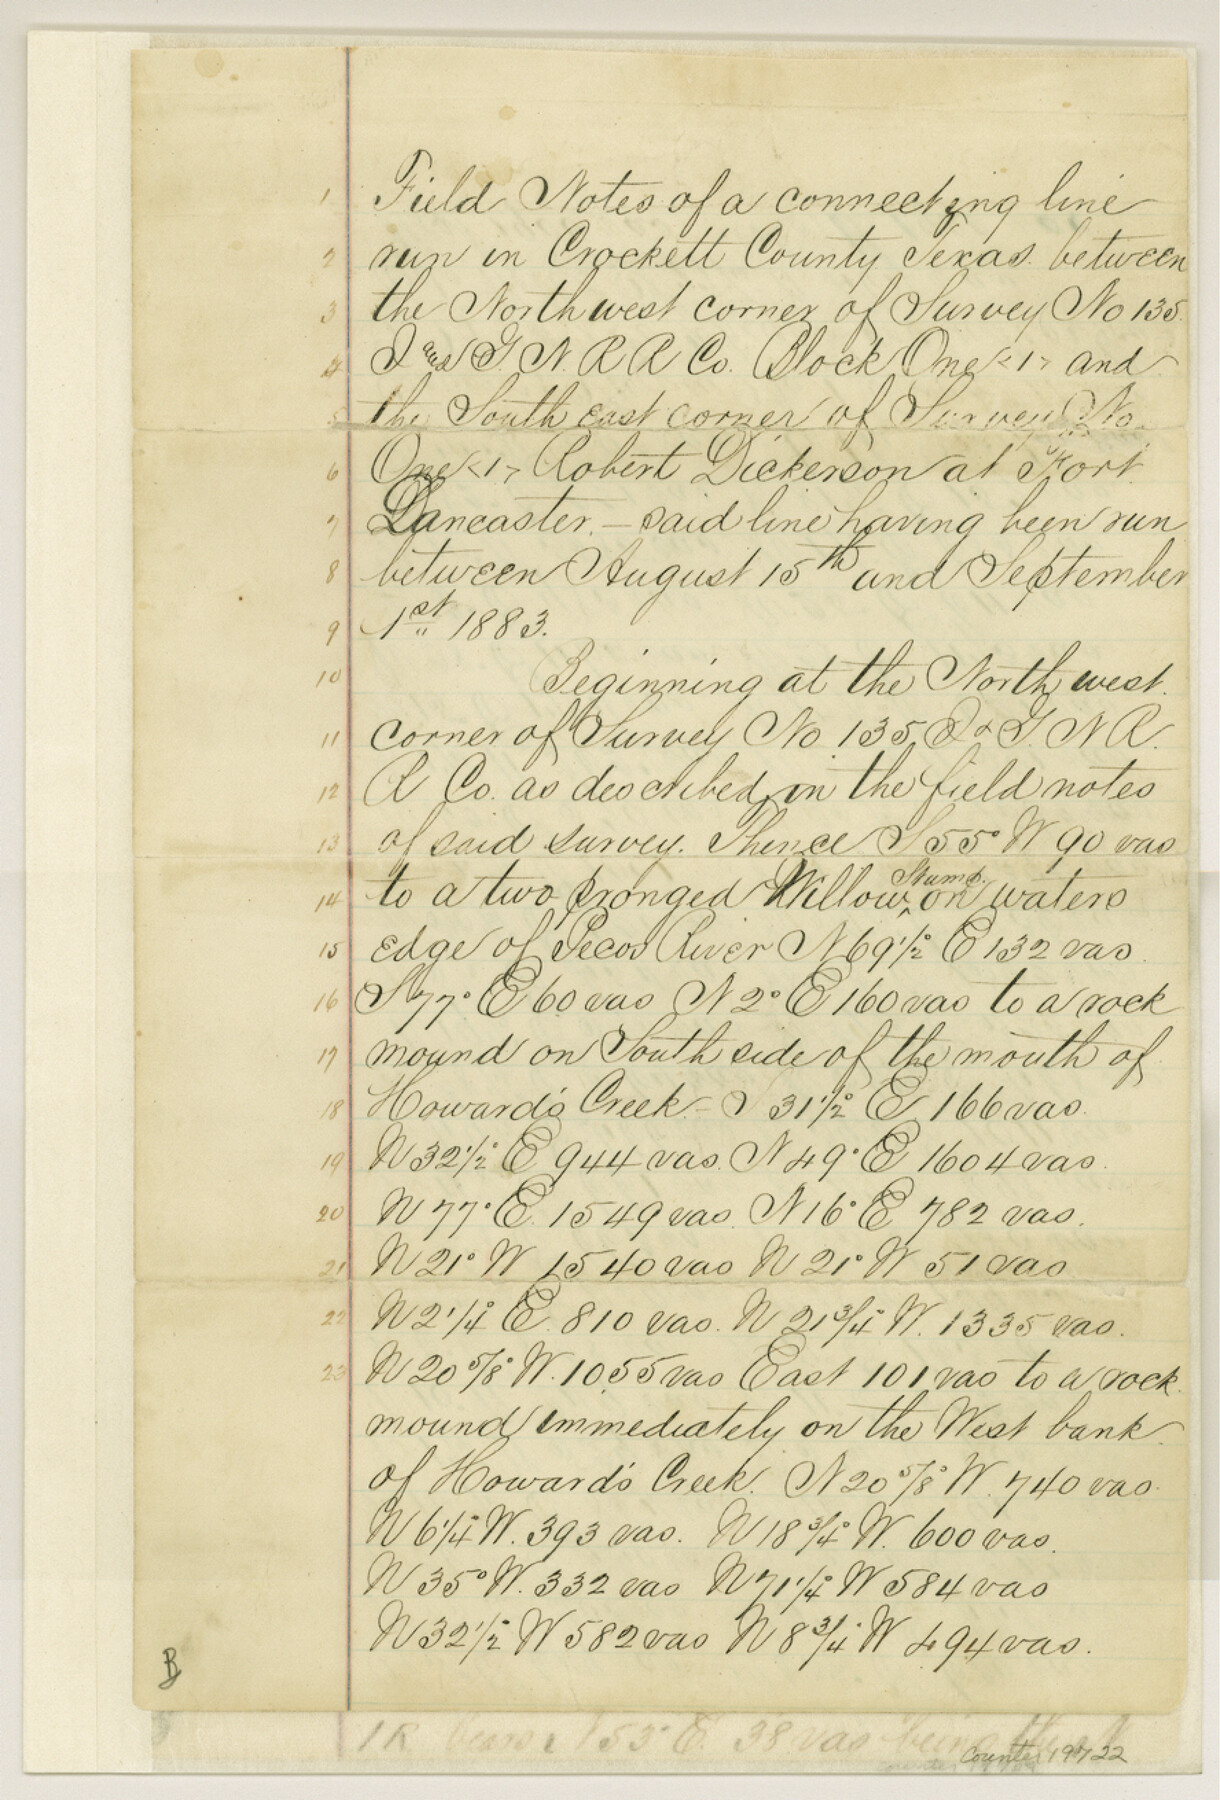 1 Field Notes of a connecting line
2 run in Crockett County Texas between
3 the North west corner of Survey No 135
4 I and G. N. R R Co. Block One <1> and
5 the South east corner of Survey No.
6 One <1> Robert Dickerson at Fort
7 Lancaster. — said line having been run
8 between August 15th and September
9 1st 1883.
10 Beginning at the North west
11 corner of Survey No 135 I & G. N R.
12 R Co. as described in the field notes
13 of said survey. Thence S 55° W 90 vas
Stump.
14 to a two pronged Willow ^ on waters
15 edge of Pecos River N 69 1/2° E 132 vas
16 S 77° E 60 vas N 2° E 160 vas to a rock
17 mound on South side of the mouth of
18 Howard's Creek - S 31 1/2° E 166 vas.
19 N 32 1/2° E 944 vas. N 49° E 1604 vas.
20 N 77° E. 1549 vas. N 16° E 782 vas.
21 N 21° W 1540 vas N 21° W 51 vas
22 N 2 1/4° E. 810 vas. N 21 3/4° W. 1335 vas.
23 N 20 5/8° W. 1055 vas East 101 vas to a rock
mound immediately on the West bank
of Howard's Creek. N 20 5/8° W. 740 vas.
N 6 1/4° W. 393 vas. N 18 3/4° W. 600 vas.
N 35° W. 332 vas N 71 1/4° W 584 vas
N 32 1/2° W 582 vas N 8 3/4° W 494 vas.
B
1R bears N 53° E. 38 vas being
counter 19722